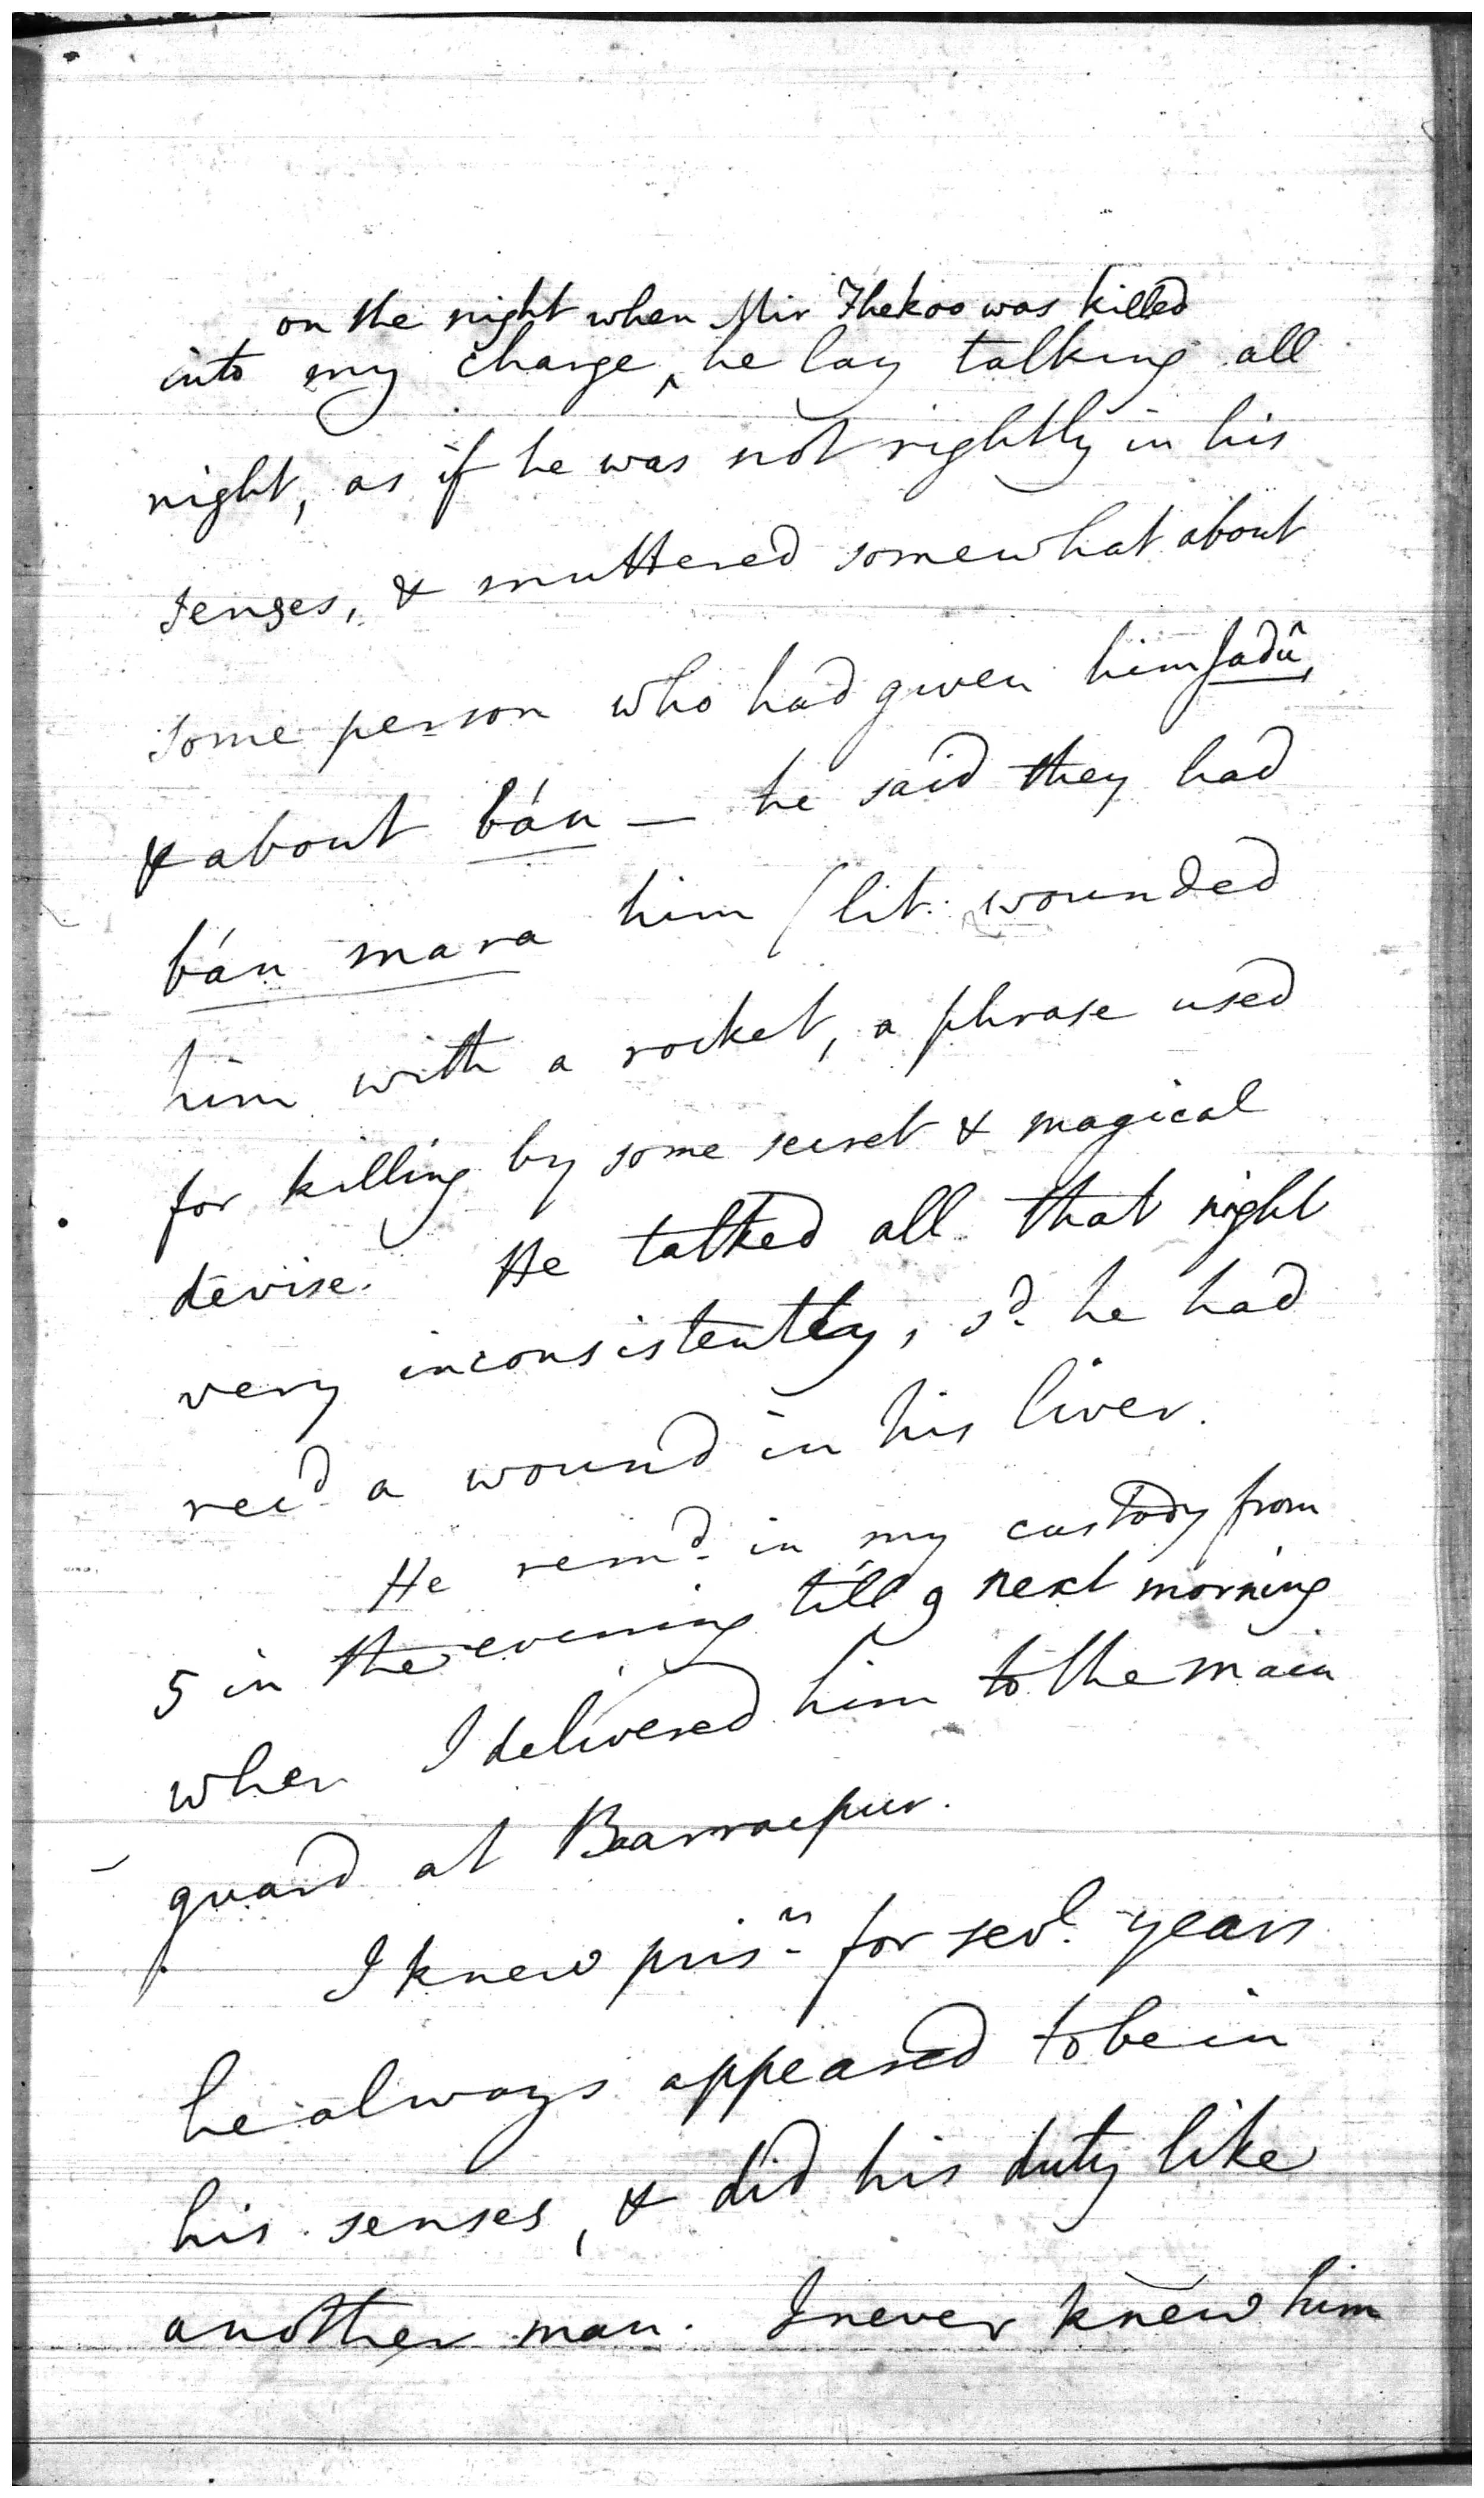 on the night when Mir Thekoo was killed
into my charge ‸ he lay talking all
night, as if he was not rightly in his
senses, & muttered somewhat about
some person who had given him Jadû,
& about bán — he said they had
bán mara him (lit: wounded
him with a rocket, a phrase used
for killing by some secret & magical
devise. He talked all that night
very inconsistently, sd. he had
recd. a wound in his liver.
He remd. in my custody from
5 in the evening till 9 next morning
when I delivered him to the main
guard at Baarracpur.
I knew prisn. for sevl. years
he always appeared to be in
his senses, & did his duty like
another man. I never knew him